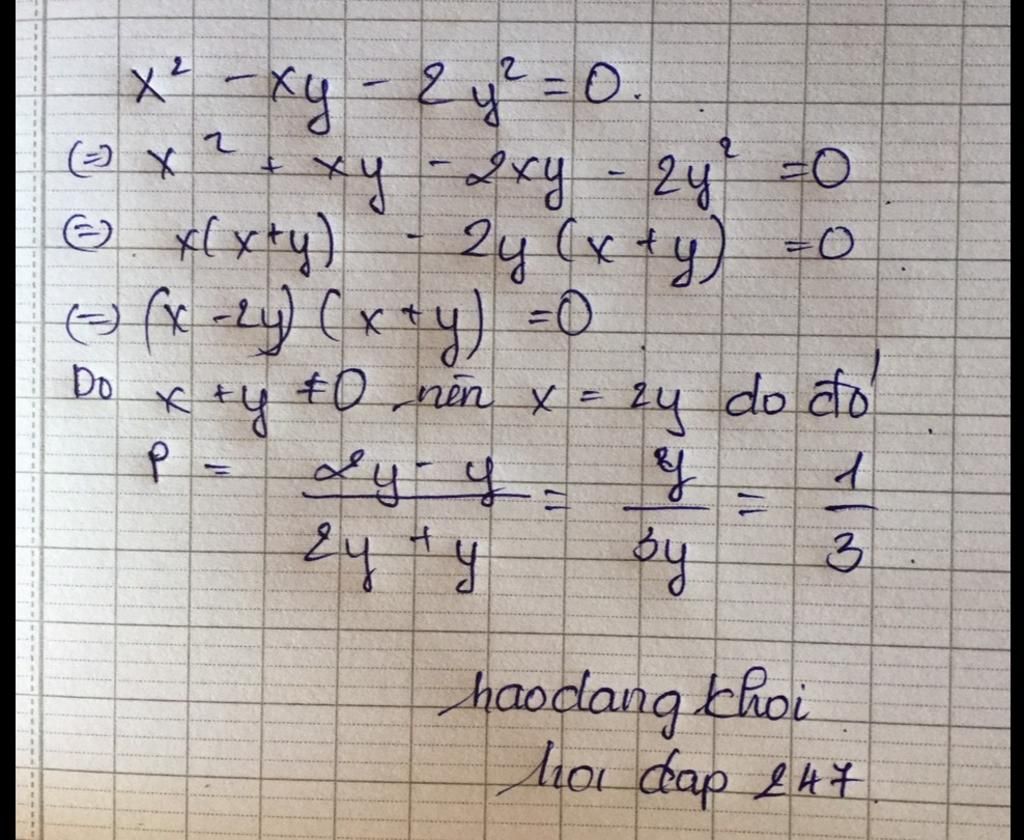 x² - xy - 2y² = 0.
(=) x² + xy - 2xy - 2y² = 0
(=) x(x+y) - 2y(x+y) = 0
(=) (x-2y)(x+y) = 0
Do x+y ≠ 0 nên x = 2y do đó
P = (2y - y)/(2y + y) = y/3y = 1/3.
haodang khoi
hoi đap 247